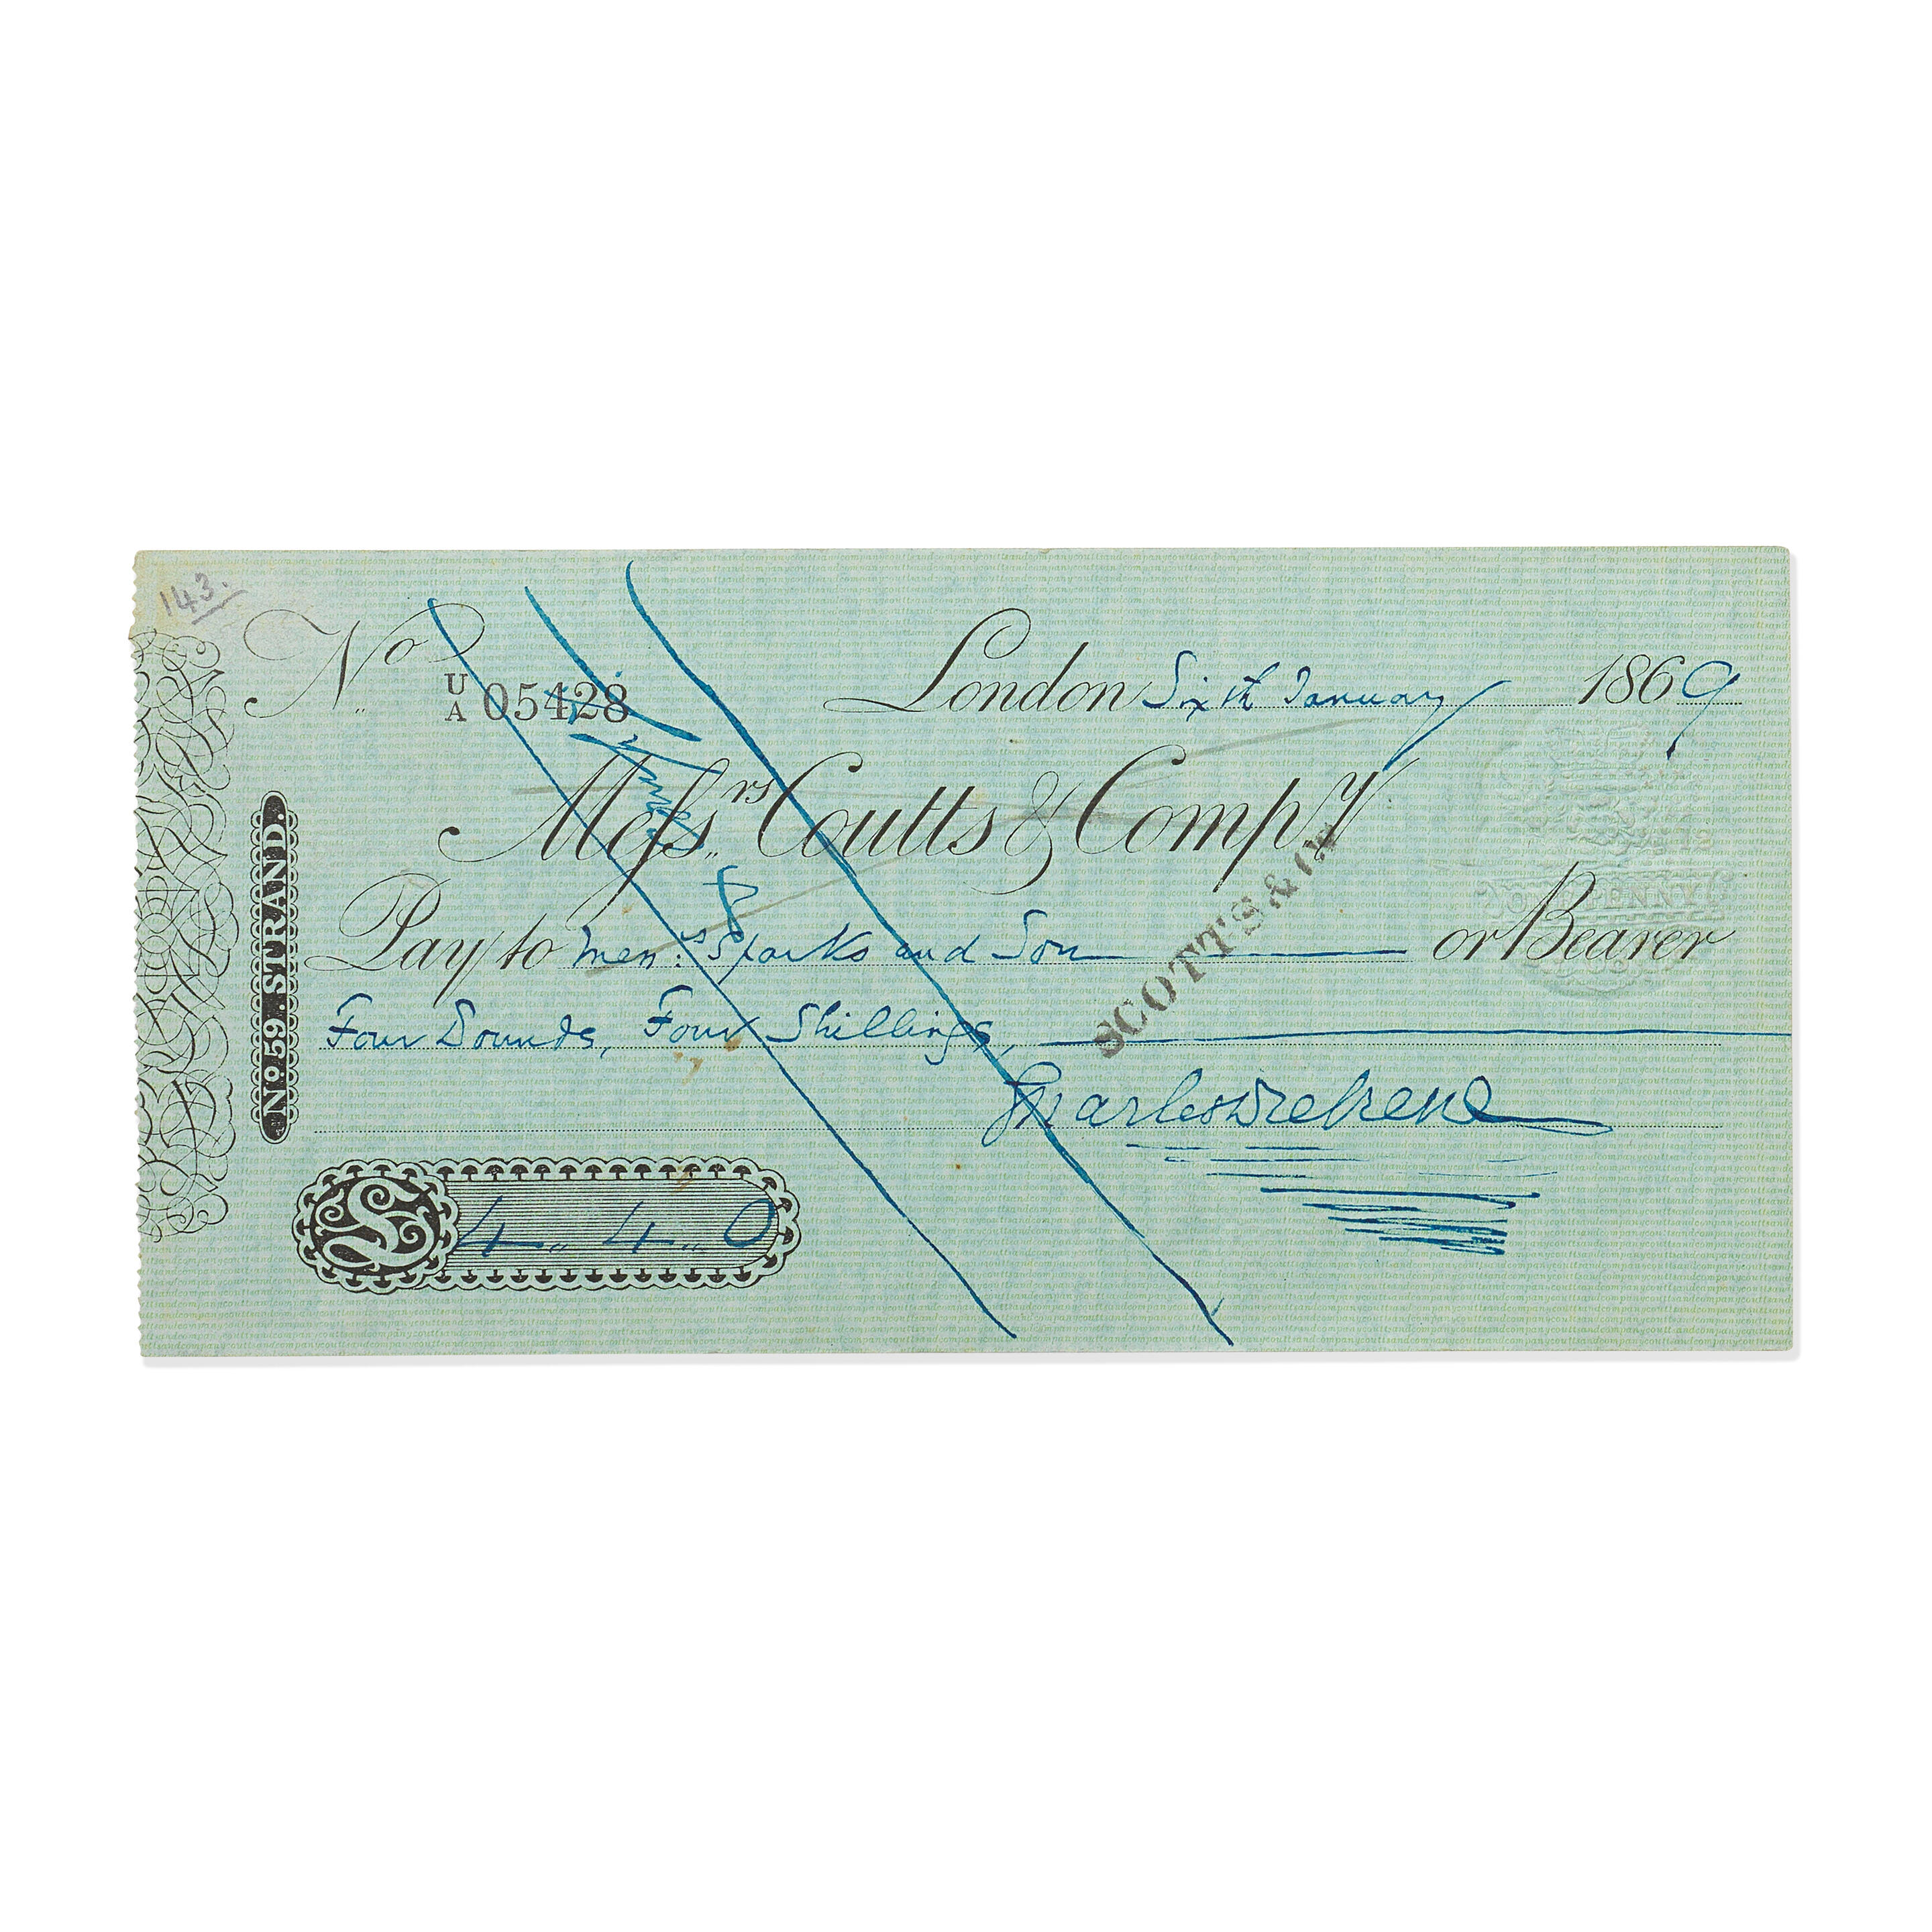 143.
No U/A 05428 London Sixth January 1869
Messrs Coutts & Compy
Pay to Messrs Sparks and Son or Bearer
Four Pounds, Four Shillings,
Charles Dickens
£ 4 . 4 . 0
No. 59. STRAND.
SCOTT'S & Co
ONE PENNY